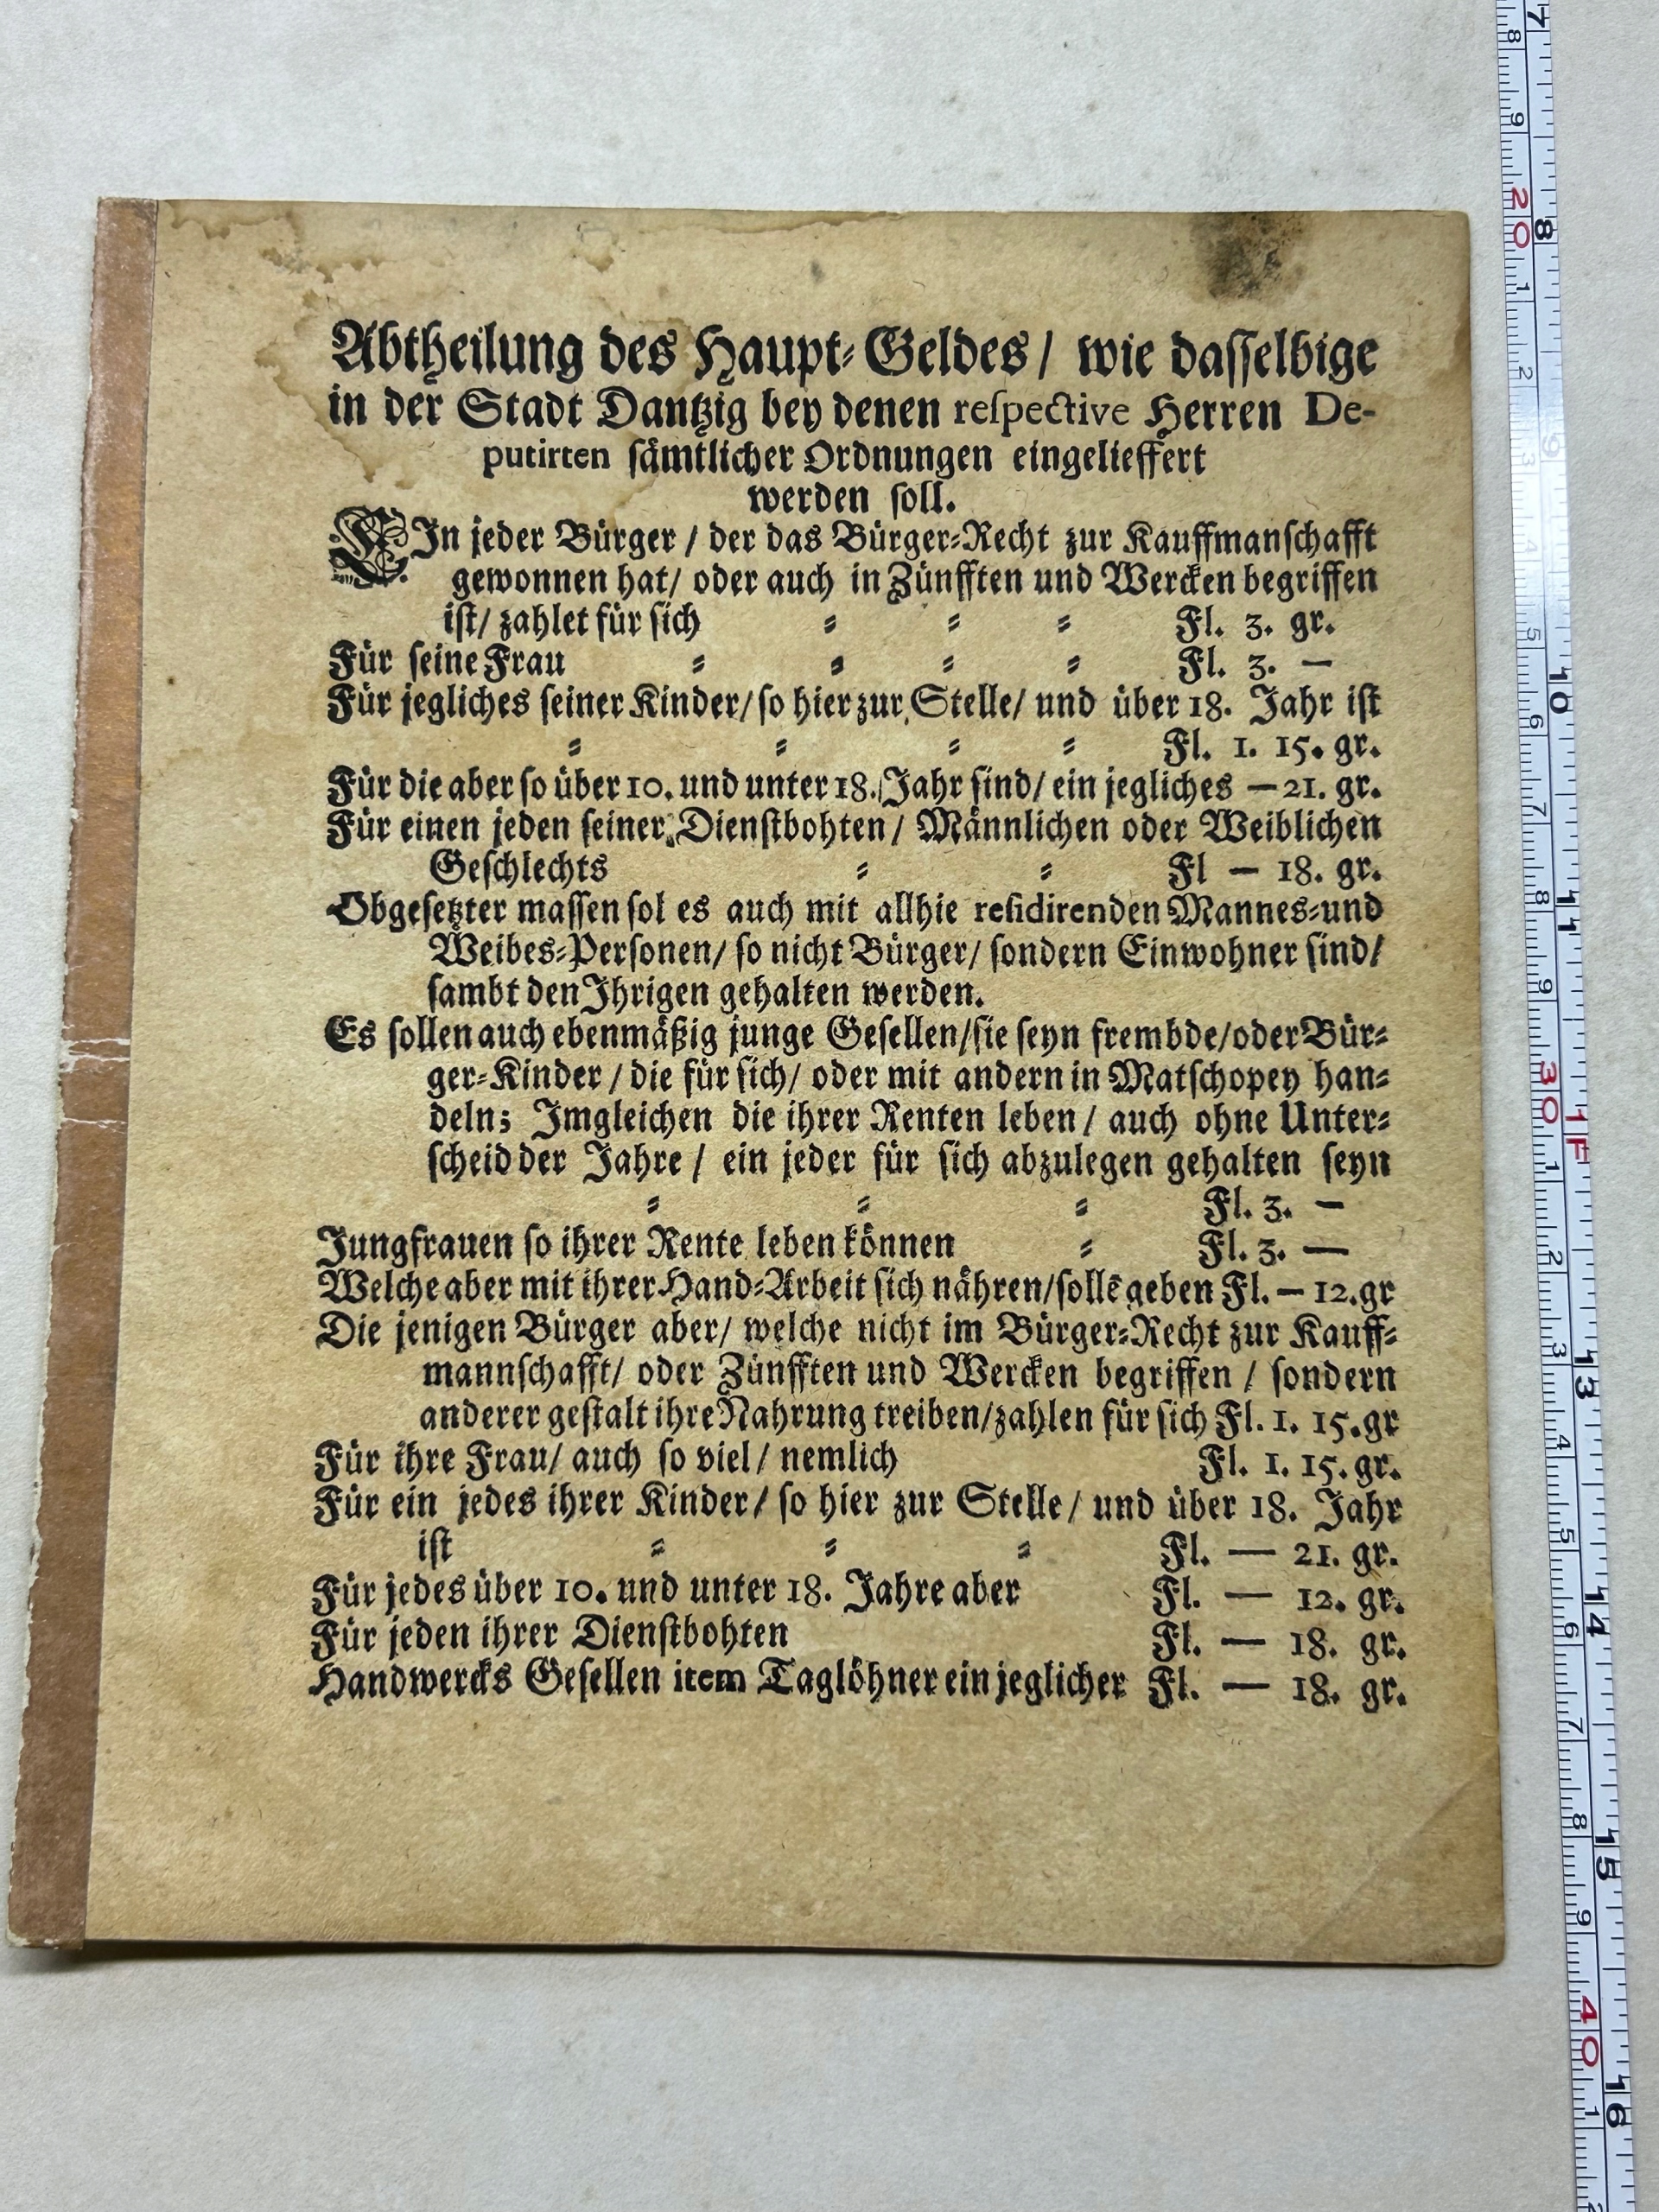 Abtheilung des Haupt-Geldes / wie dasselbige
in der Stadt Dantzig bey denen respective Herren De-
putirten sämtlicher Ordnungen eingelieffert
werden soll.
EIn jeder Bürger / der das Bürger-Recht zur Kauffmanschafft
gewonnen hat / oder auch in Zünfften und Wercken begriffen
ist / zahlet für sich = = = Fl. 3. gr.
Für seine Frau = = = = Fl. 3. —
Für jegliches seiner Kinder / so hier zur Stelle / und über 18. Jahr ist
= = = = Fl. 1. 15. gr.
Für die aber so über 10. und unter 18. Jahr sind / ein jegliches — 21. gr.
Für einen jeden seiner Dienstbohten / Männlichen oder Weiblichen
Geschlechts = = Fl — 18. gr.
Obgesetzter massen sol es auch mit allhie residirenden Mannes-und
Weibes-Personen / so nicht Bürger / sondern Einwohner sind /
sambt den Ihrigen gehalten werden.
Es sollen auch ebenmäßig junge Gesellen / sie seyn frembde / oder Bür-
ger-Kinder / die für sich / oder mit andern in Matschopey han-
deln; Imgleichen die ihrer Renten leben / auch ohne Unter-
scheid der Jahre / ein jeder für sich abzulegen gehalten seyn
= = = Fl. 3. —
Jungfrauen so ihrer Rente leben können = Fl. 3. —
Welche aber mit ihrer Hand-Arbeit sich nähren / sollē geben Fl. — 12. gr
Die jenigen Bürger aber / welche nicht im Bürger-Recht zur Kauff-
mannschafft / oder Zünfften und Wercken begriffen / sondern
anderer gestalt ihre Nahrung treiben / zahlen für sich Fl. 1. 15. gr
Für ihre Frau / auch so viel / nemlich Fl. 1. 15. gr.
Für ein jedes ihrer Kinder / so hier zur Stelle / und über 18. Jahr
ist = = = Fl. — 21. gr.
Für jedes über 10. und unter 18. Jahre aber Fl. — 12. gr.
Für jeden ihrer Dienstbohten Fl. — 18. gr.
Handwercks Gesellen item Taglöhner ein jeglicher Fl. — 18. gr.
7 8 9 10 11 1F 13 14 15 16
8 9 20 1 2 3 4 5 6 7 8 9 30 1 2 3 4 5 6 7 8 9 40 1